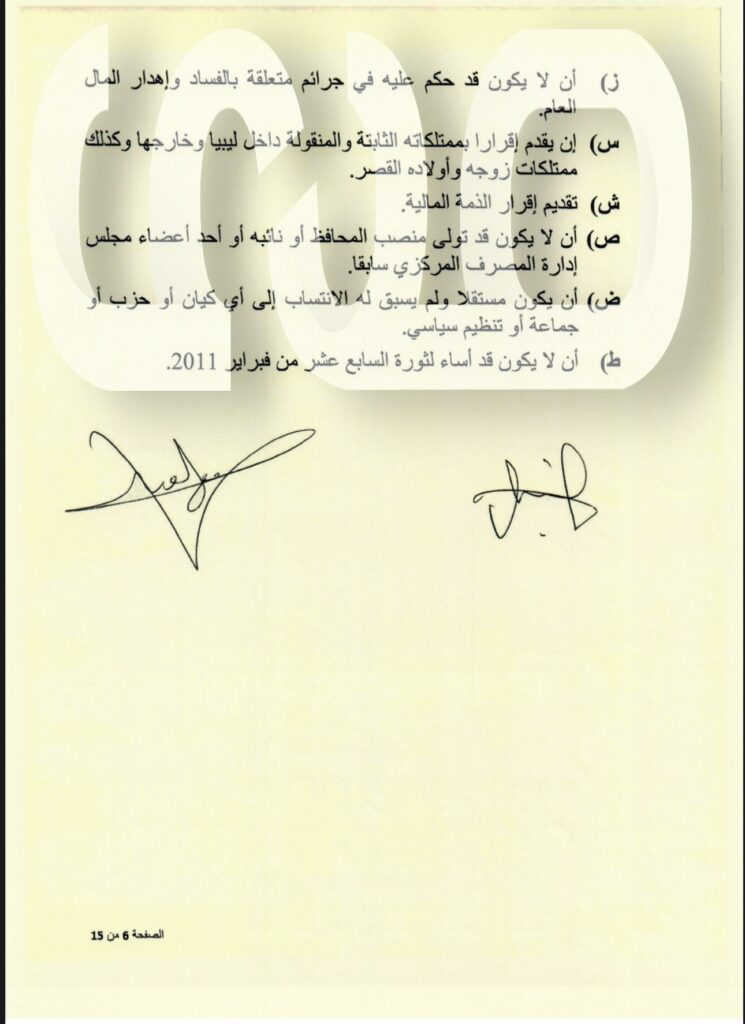 ز) أن لا يكون قد حكم عليه في جرائم متعلقة بالفساد وإهدار المال
العام.
س) إن يقدم إقرارا بممتلكاته الثابتة والمنقولة داخل ليبيا وخارجها وكذلك
ممتلكات زوجه وأولاده القصر.
ش) تقديم إقرار الذمة المالية.
ص) أن لا يكون قد تولى منصب المحافظ أو نائبه أو أحد أعضاء مجلس
إدارة المصرف المركزي سابقا.
ض) أن يكون مستقلا ولم يسبق له الانتساب إلى أي كيان أو حزب أو
جماعة أو تنظيم سياسي.
ط) أن لا يكون قد أساء لثورة السابع عشر من فبراير 2011.
الصفحة 6 من 15